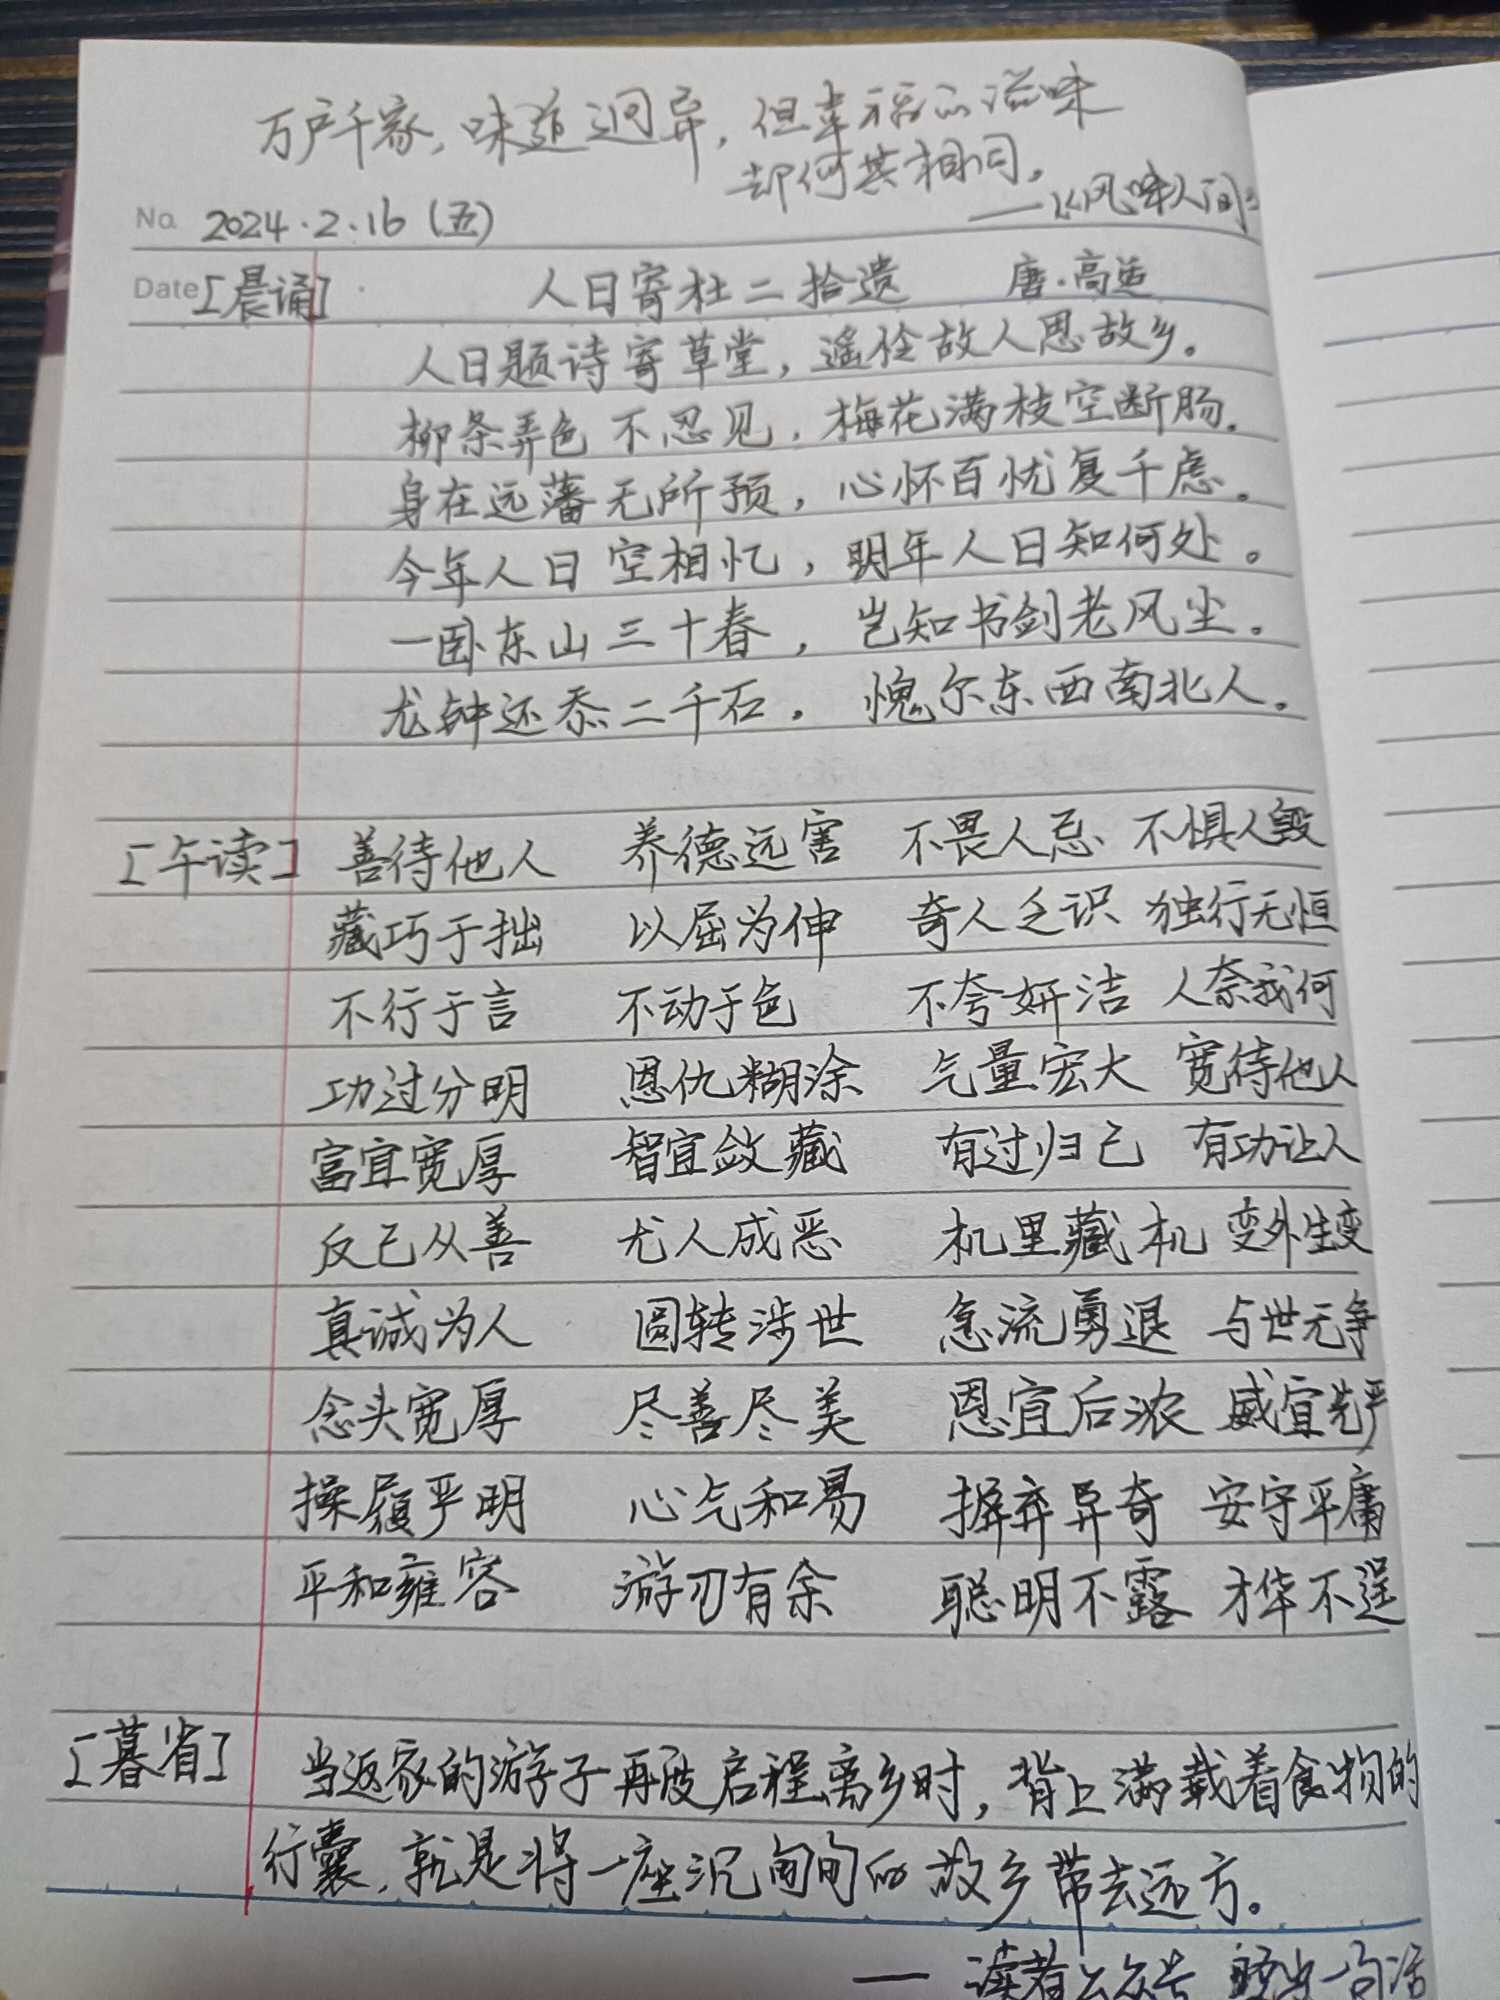 万户千家,味道迥异,但幸福的滋味
却何其相同。
——《风味人间》
No. 2024.2.16(五)
Date [晨诵] 人日寄杜二拾遗 唐·高适
人日题诗寄草堂,遥怜故人思故乡。
柳条弄色不忍见,梅花满枝空断肠。
身在远藩无所预,心怀百忧复千虑。
今年人日空相忆,明年人日知何处。
一卧东山三十春,岂知书剑老风尘。
龙钟还忝二千石。愧尔东西南北人。
[午读] 善待他人 养德远害 不畏人忌 不惧人毁
藏巧于拙 以屈为伸 奇人乏识 独行无恒
不行于言 不动于色 不夸妍洁 人奈我何
功过分明 恩仇糊涂 气量宏大 宽待他人
富宜宽厚 智宜敛藏 有过归己 有功让人
反己从善 尤人成恶 机里藏机 变外生变
真诚为人 圆转涉世 急流勇退 与世无争
念头宽厚 尽善尽美 恩宜后浓 威宜先严
操履严明 心气和易 摒弃异奇 安守平庸
平和雍容 游刃有余 聪明不露 才华不逞
[暮省] 当返家的游子再度启程离乡时,背上满载着食物的
行囊,就是将一座沉甸甸的故乡带去远方。
——读者公众号 一句话